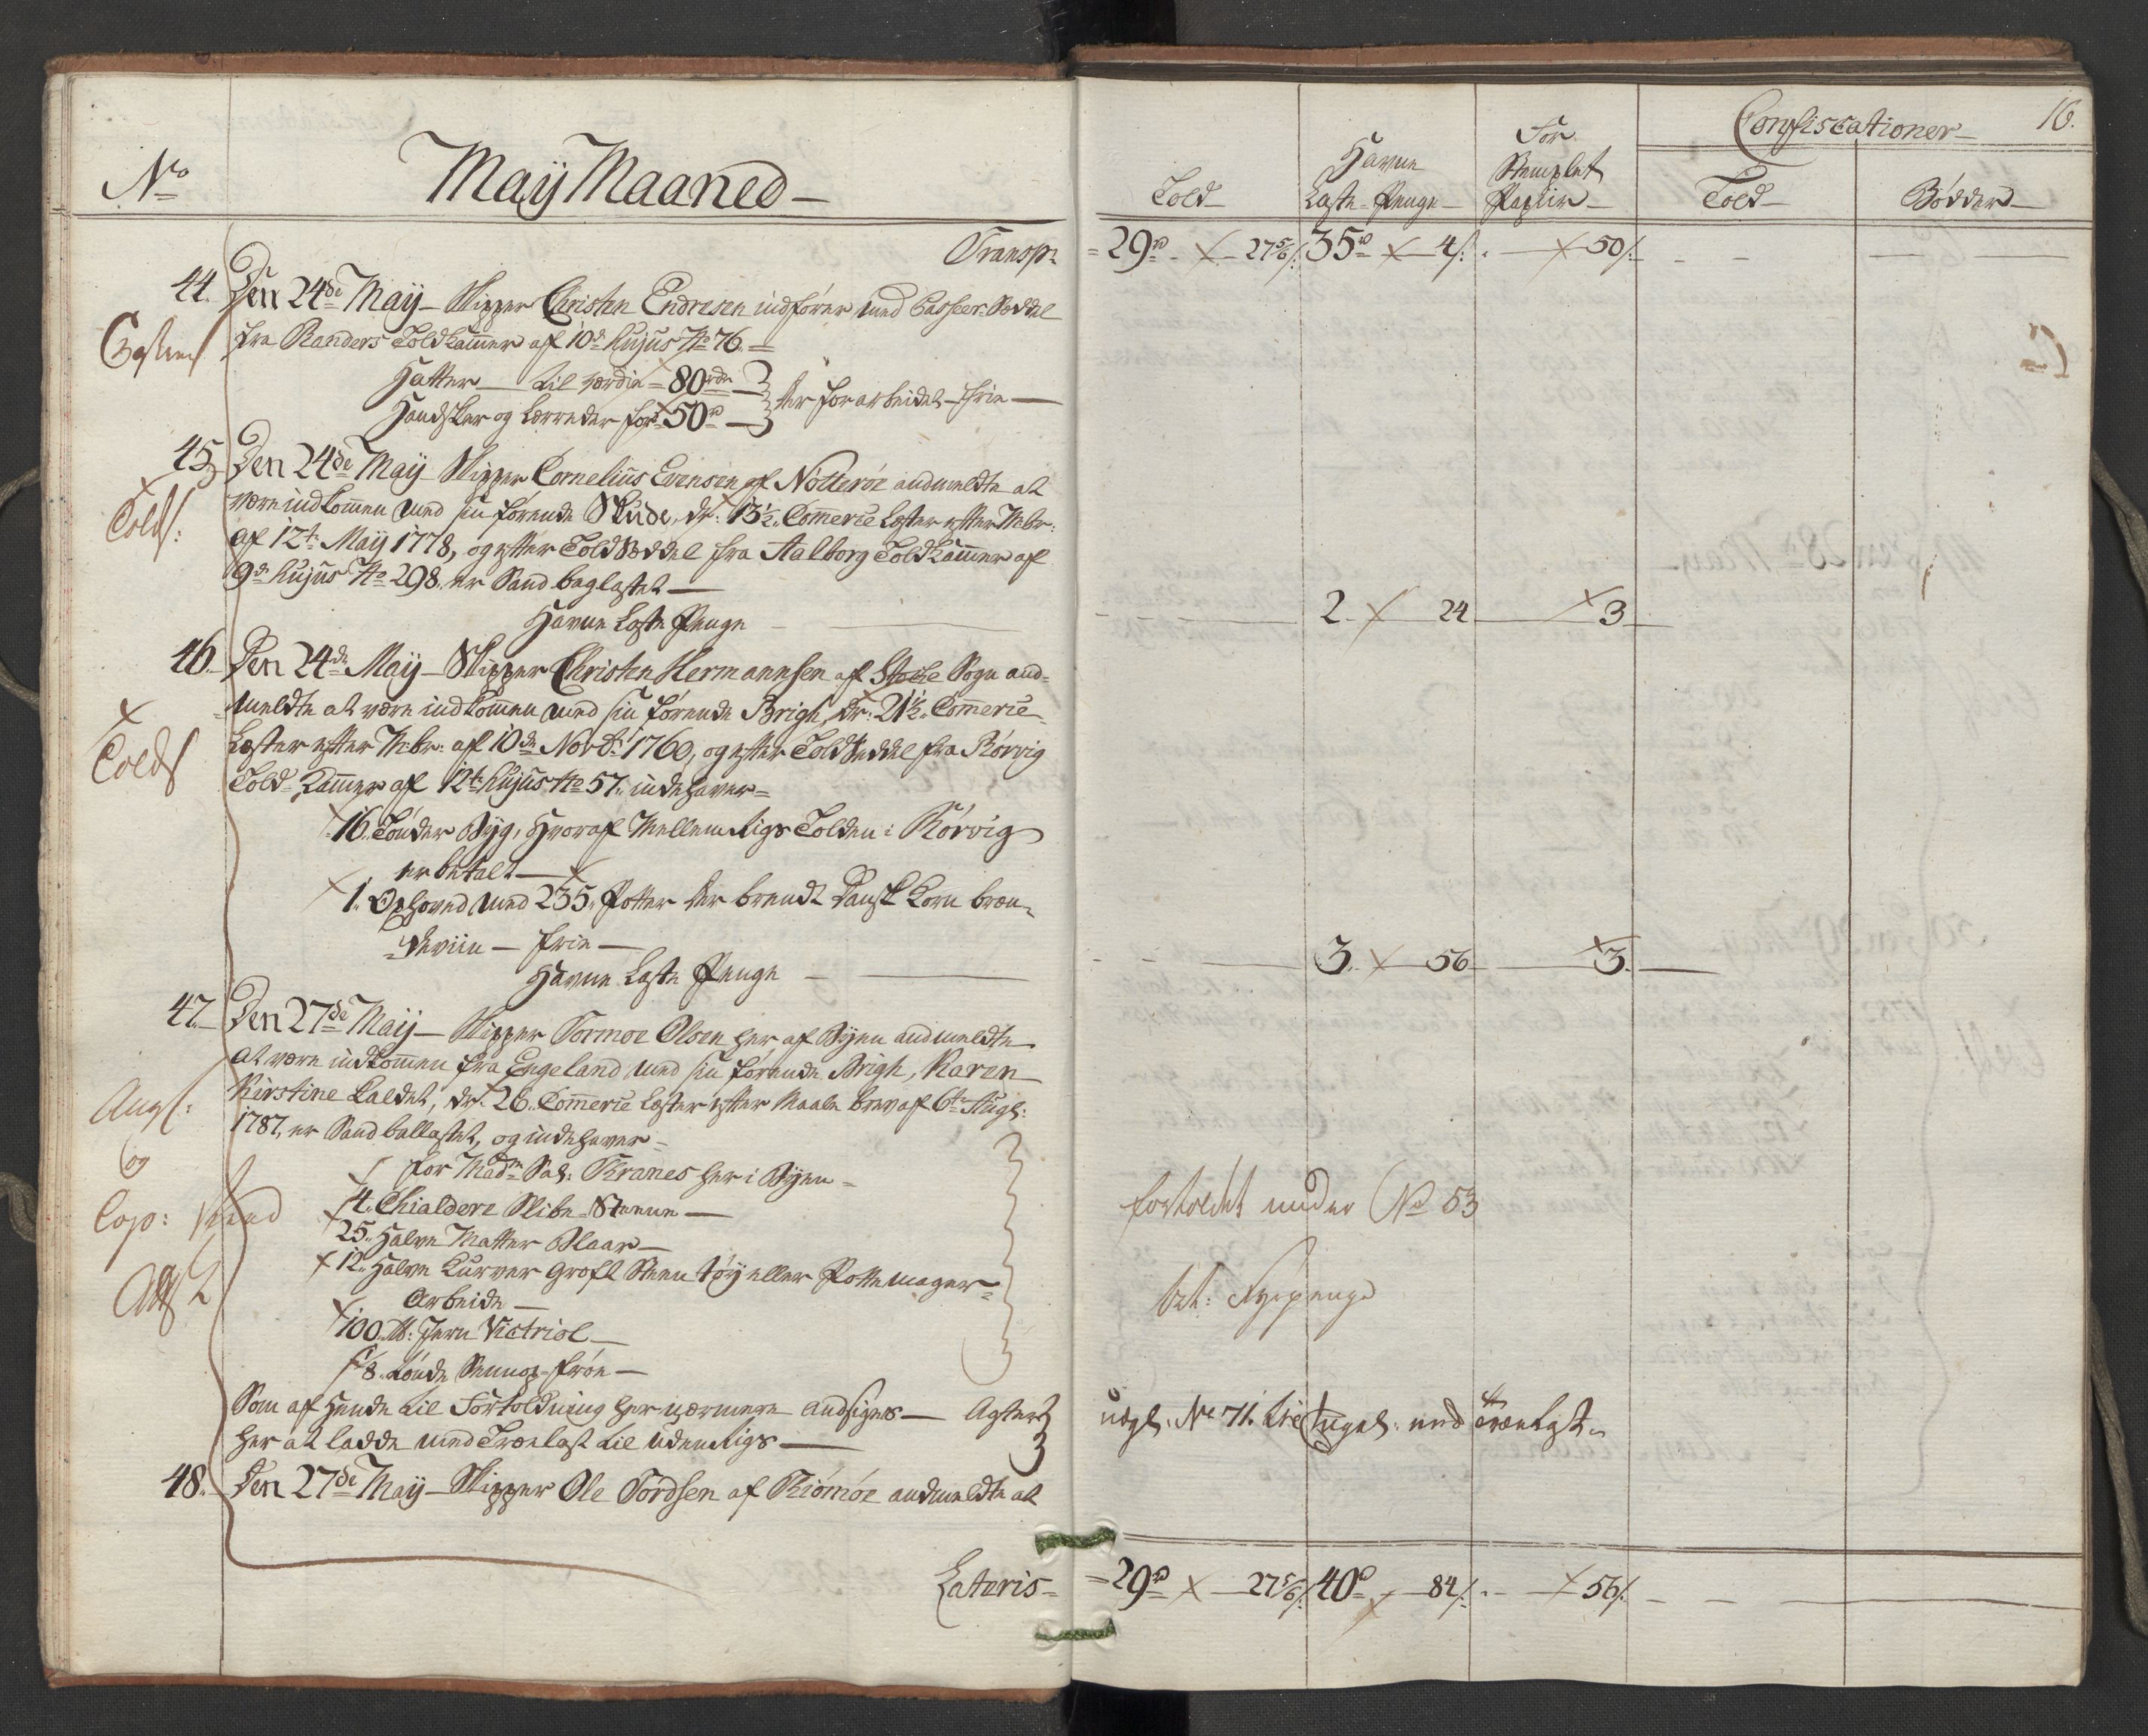 No
Maÿ Maaned
Transp:
44. Den 24de Maÿ Skipper Christen Endresen indfører med Passeer-Seddel
fra Randers Toldkammer af 10de hujus No 76
Hatter til værdie 80rdr
Handsker og Lærreder for 50rd
der forarbeidet frie
45. Den 24de Maÿ Skipper Cornelius Evensen af Nötteröe andmeldte at
Told:
være indkommen med sin førende Skude, dr: 13½ Commerce Læster efter Mbr:
af 12te Maÿ 1778, og efter Toldseddel fra Aalborg Toldkammer af
9de hujus No 298. er Sand baglastet
Havne Læste Penge
46. Den 24de Maÿ Skipper Christen Hermannsen af Stoche Sogn and-
meldte at være indkommen med sin førende Brigh, dr: 21½ Commerce
Læster efter Mbr: af 10de Novbr 1760, og efter Toldseddel fra Rörvig
Told
Told-Kammer af 12te hujus No 57. indehaver
16. Tønder Byg, hvoraf Mellemrigs Tolden i Rörvig
er betalt
1. Oxhoved med 235. Potter der brendt Dansk Korn bræn-
deviin frie
Havne Læste Penge
47. Den 27de Maÿ Skipper Tormoe Olsen her af Byen andmeldte
at være indkommen fra Engeland med sin førende Brigh, Karen
Kirstine kaldet, dr. 26. Commerce Læster efter Maale brev af 6te Augt:
1787, er Sand ballastet, og indehaver
og
for Madme Sal: Kranes her i Byen
4. Chialdere Slibe-Steene
25. Halve Matter Blaar
12. Halve Kurver Groft Steentøÿ eller Pottemager-
Arbeide
100 lb: Jern Victriol
1/8. Tønde Sennops-frøe
Som af hende til Fortoldning her nærmere andsiges Agter
her at ladde med Trælast til udenrigs
48. Den 27de Maÿ Skipper Ole Tordsen af Kiömöe andmeldte at
Lateris
16.
Told
Havne Læste-Penge
For Stemplet Papiir
Confiscationer
Told
Bødder
29rd 27 5/6 s: 35rd 4 s: 50 s:
2. 24 3
3. 56 3.
fortoldet under No 53
bet: Fyrpenge
udgl. No 71. til Engel: med Trælast
29rd 27 5/6 s: 40rd 84 s: 56 s: